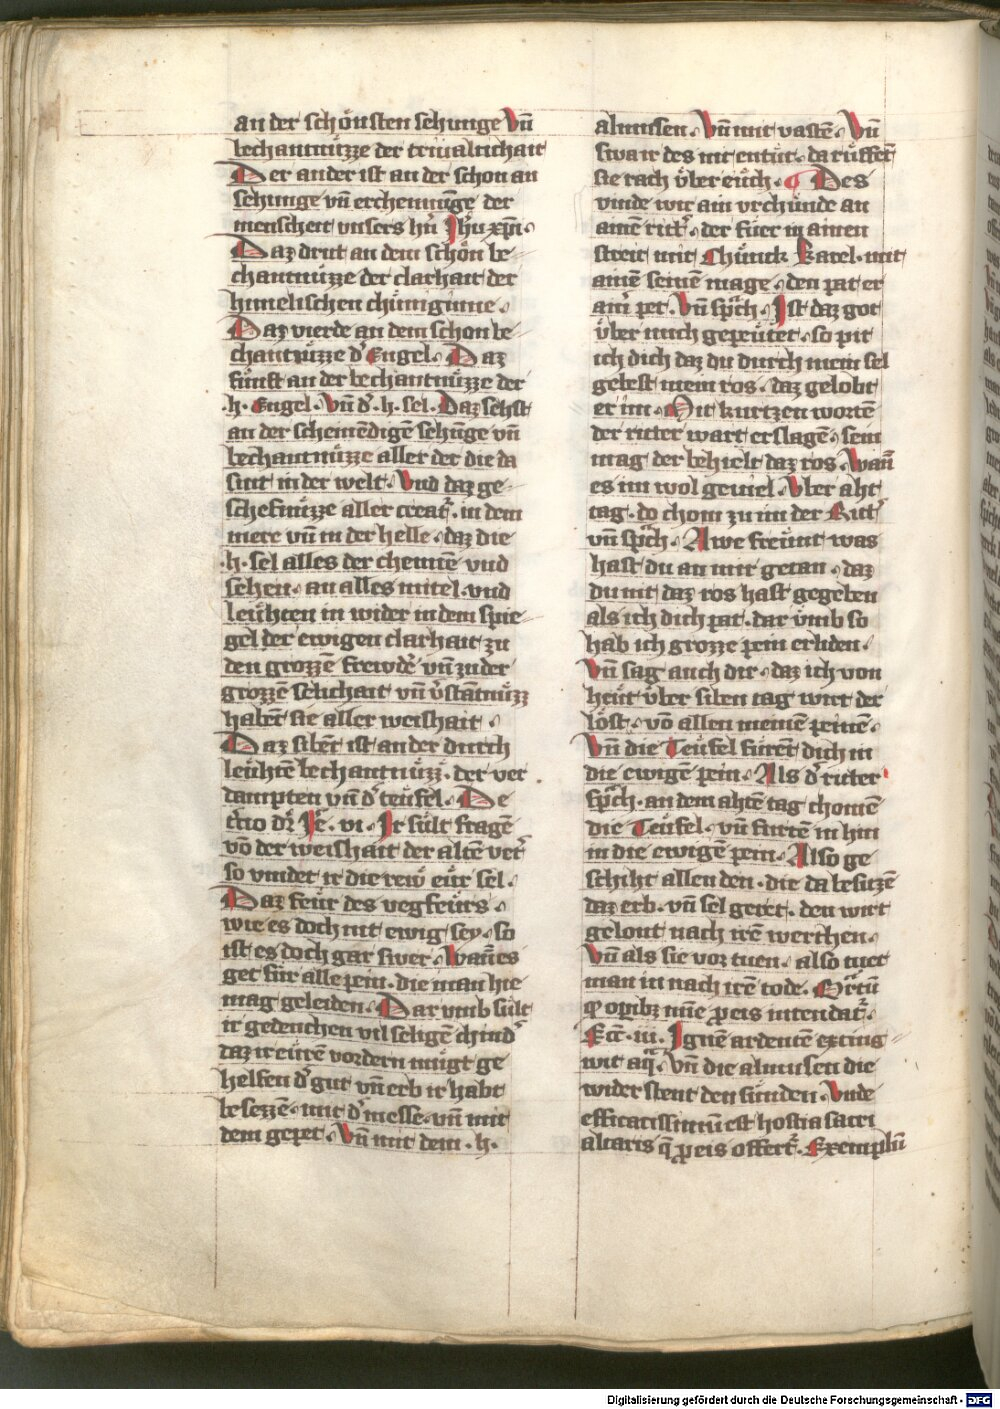 an der schönsten sehunge Vn̄
bechantnüzze der trivaltichait
Der ander ist an der schon an
sehunge vn̄ erchennūge der
menscheit vnsers h'n Jh'u xp̄i.
Daz drit an dem schön be
chantnüzze der clarhait der
himelischen chüniginne.
Daz vierde an dem schon be
chantnüzze d' Engel. Daz
fünft an der bechantnüzze der
.h. Engel. Vn̄ d' .h. sel. Daz sehst
an der scheinēdigē sehūge vn̄
bechantnüzze aller der die da
sint in der welt. Vnd daz ge
schefnüzze aller creat'. in dem
mere vn̄ in der helle. daz die
.h. sel alles der chennē vnd
sehen. an alles mitel. vnd
leühten in wider in dem spie
gel der ewigen clarhait zu
den grozzē frewdē vn̄ zu der
grozzē selichait vn̄ v'stātnüzz
habēt sie aller weishait.
Daz sibēt ist an der durch
leühtē bechantnüzz. der ver
dampten vn̄ d' teüfel. De
Je. vi. Jr sült fragē
vō der weishait der altē vet'
so vindet ir die rew eür sel.
Daz feür des vegfeürs.
wie es doch nit ewig sey. so
ist es doch gar swer. Wan̄ es
get für alle pein. die man hie
mag geleiden. Dar vmb sült
ir gedenchen vil seligē chind'
daz ir eürē vordern mügt ge
helfen d' gut vn̄ erb ir habt
besezzē. mit d' messe. vn̄ mit
dem gepet. Vn̄ mit dem .h.
almusen. Vn̄ mit vastē. Vn̄
swa ir des nit entüt. da rüffēt
sie rach über eüch. Des
vinde wir ain vrchünde an
ainē rict'. der füer in ainen
streit mit Chünick Karel. mit
ainē seinē mage. den pat er
ain' pet. Vn̄ sp'ch. Jst daz got
über mich gepeütet. so pit
ich dich daz du durch mein sel
gebest mein ros. daz gelobt
er im. Mit kurtzen wortē
der ritter wart erslagē. sein
mag der behielt daz ros. Wan̄
es im wol geviel. Vber aht
tag. do chom zu im der Ritt'
vn̄ sp'ch. Awe freünt was
hast du an mir getan. daz
du nit daz ros hast gegeben
als ich dich pat. dar vmb so
hab ich grozze pein erliden.
Vn̄ sag auch dir. daz ich von
heüt über siben tag wirt der
löst. vō allen meinē peinē.
Vn̄ die Teüfel fürēt dich in
die ewigē pein. Als d' ritter
sp'ch. an dem ahtē tag chomē
die Teüfel. vn̄ furtē in hin
in die ewigē pein. Also ge
schiht allen den. die da besitzē
daz erb. vn̄ sel geret. den wirt
gelont nach irē werchen.
Vn̄ als sie vor tuen. also tuet
man in nach irē tode.
Ecc̄. iii. Jgnē ardentē exting
wit aq'. Vn̄ die almusen die
wider stent den sünden. Vnde
efficacissimū est hostia sacri
altaris q̄ p eis offert'. Exemplū
Digitalisierung gefördert durch die Deutsche Forschungsgemeinschaft - DFG